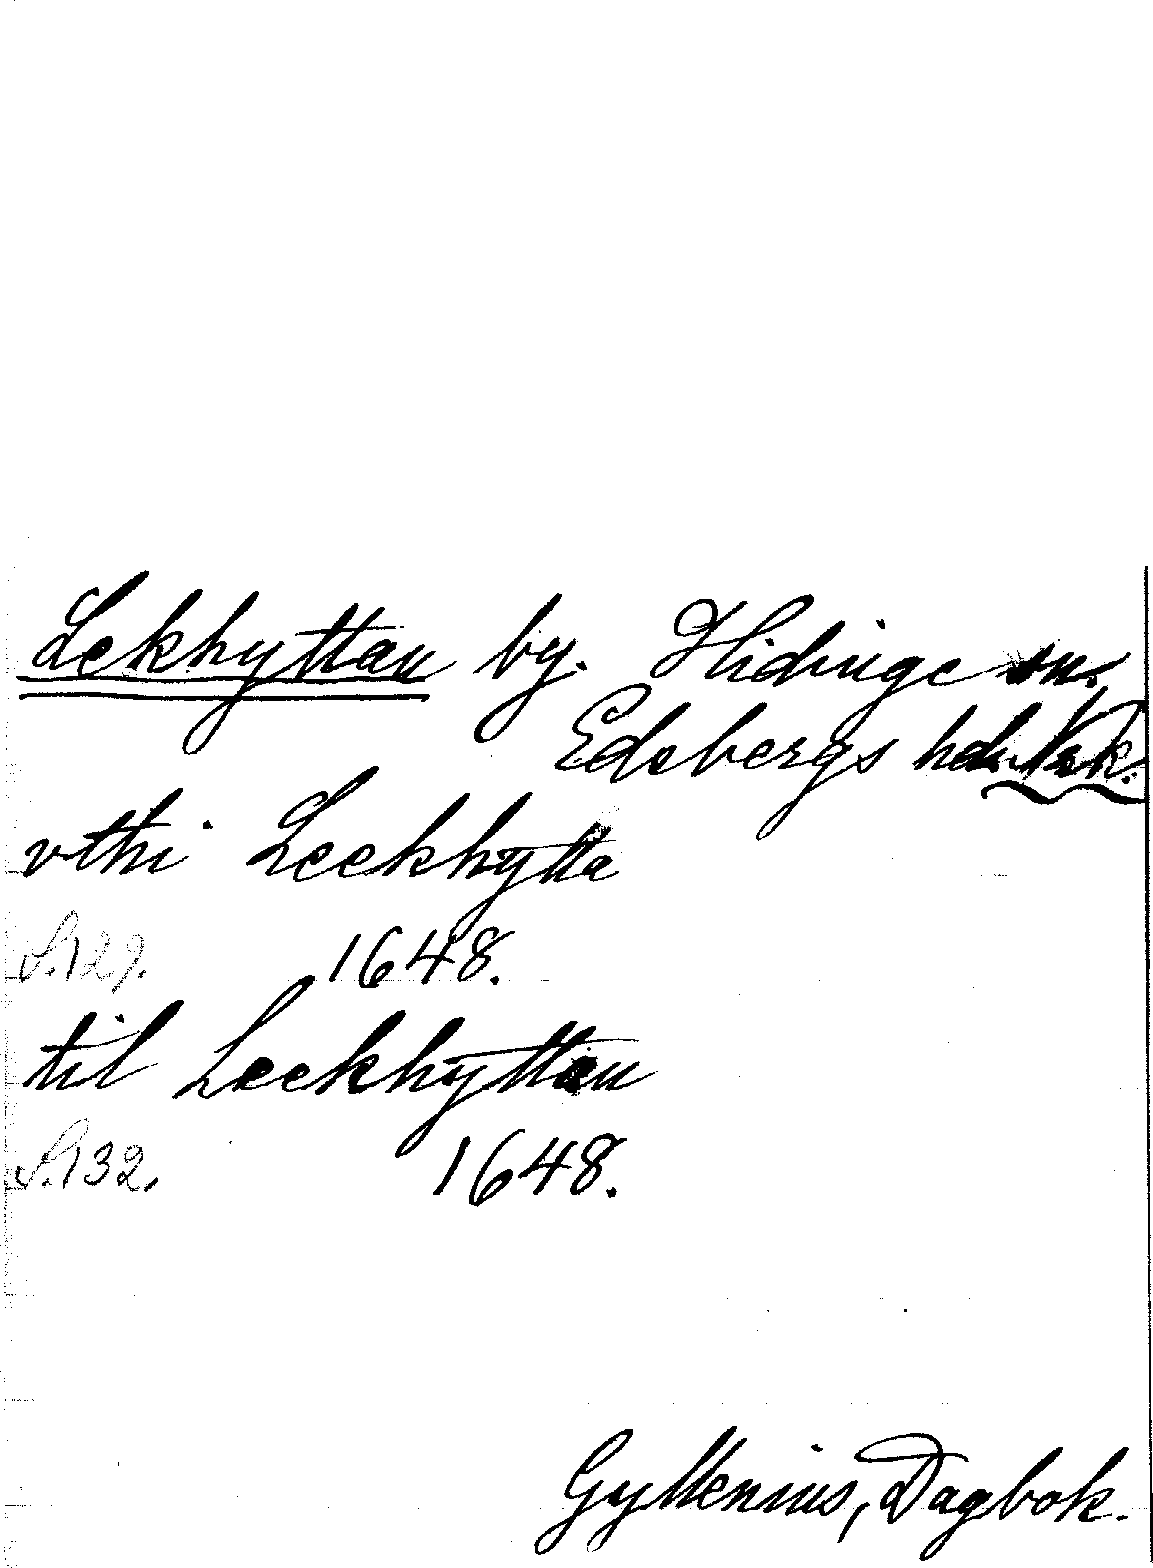 Lekhyttan by. Hidinge sn.
Edsbergs hd. Nrk.
vthi Leekhytta
S. 129. 1648.
til Leekhyttan
S. 132. 1648.
Gyllenius, Dagbok.